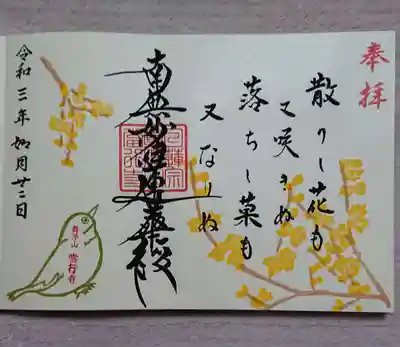 奉拝
散りし花も
又咲きぬ
落ちし菓も
又なりぬ
南無妙法蓮華経
令和三年如月廿二日